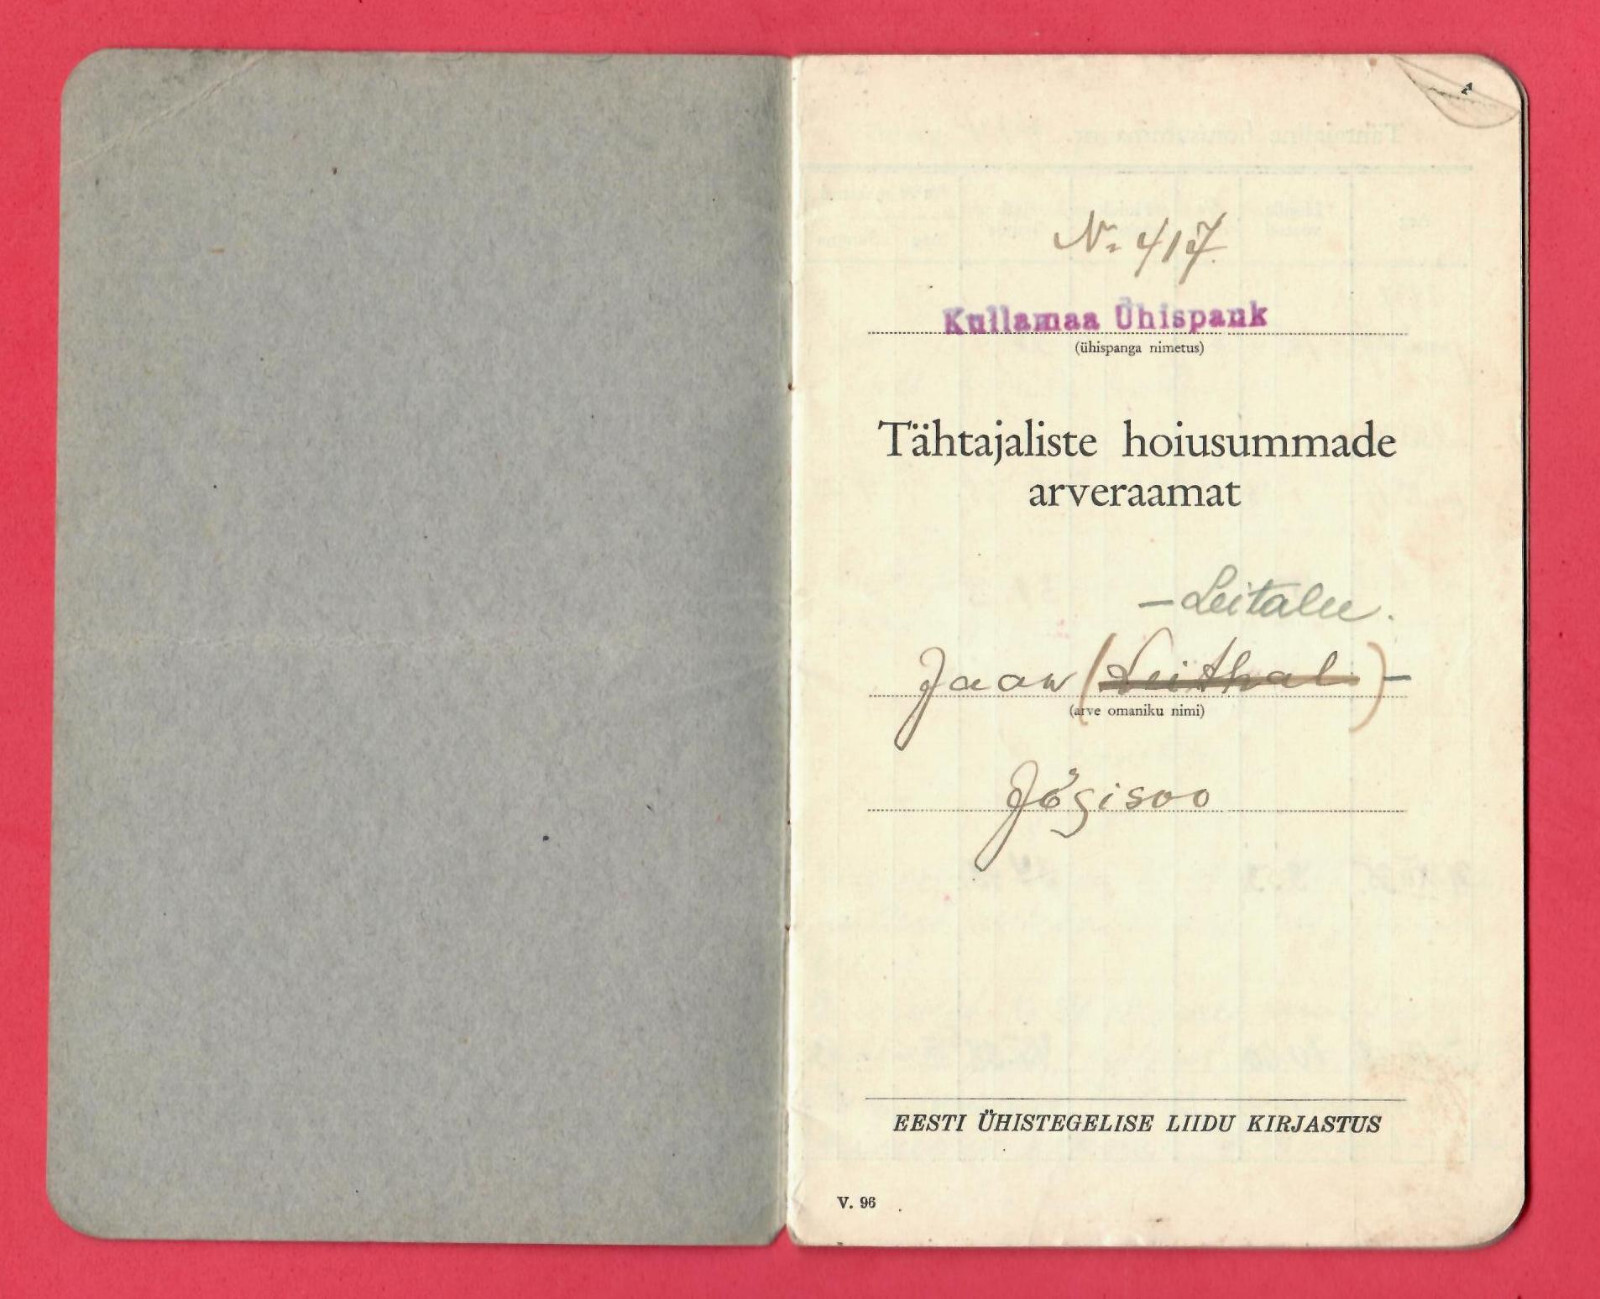 № 417.
Kullamaa Ühispank
(ühispanga nimetus)
Tähtajaliste hoiusummade
arveraamat
– Leitalu.
Jaan (Leithal) –
(arve omaniku nimi)
Jõgisoo
EESTI ÜHISTEGELISE LIIDU KIRJASTUS
V. 96